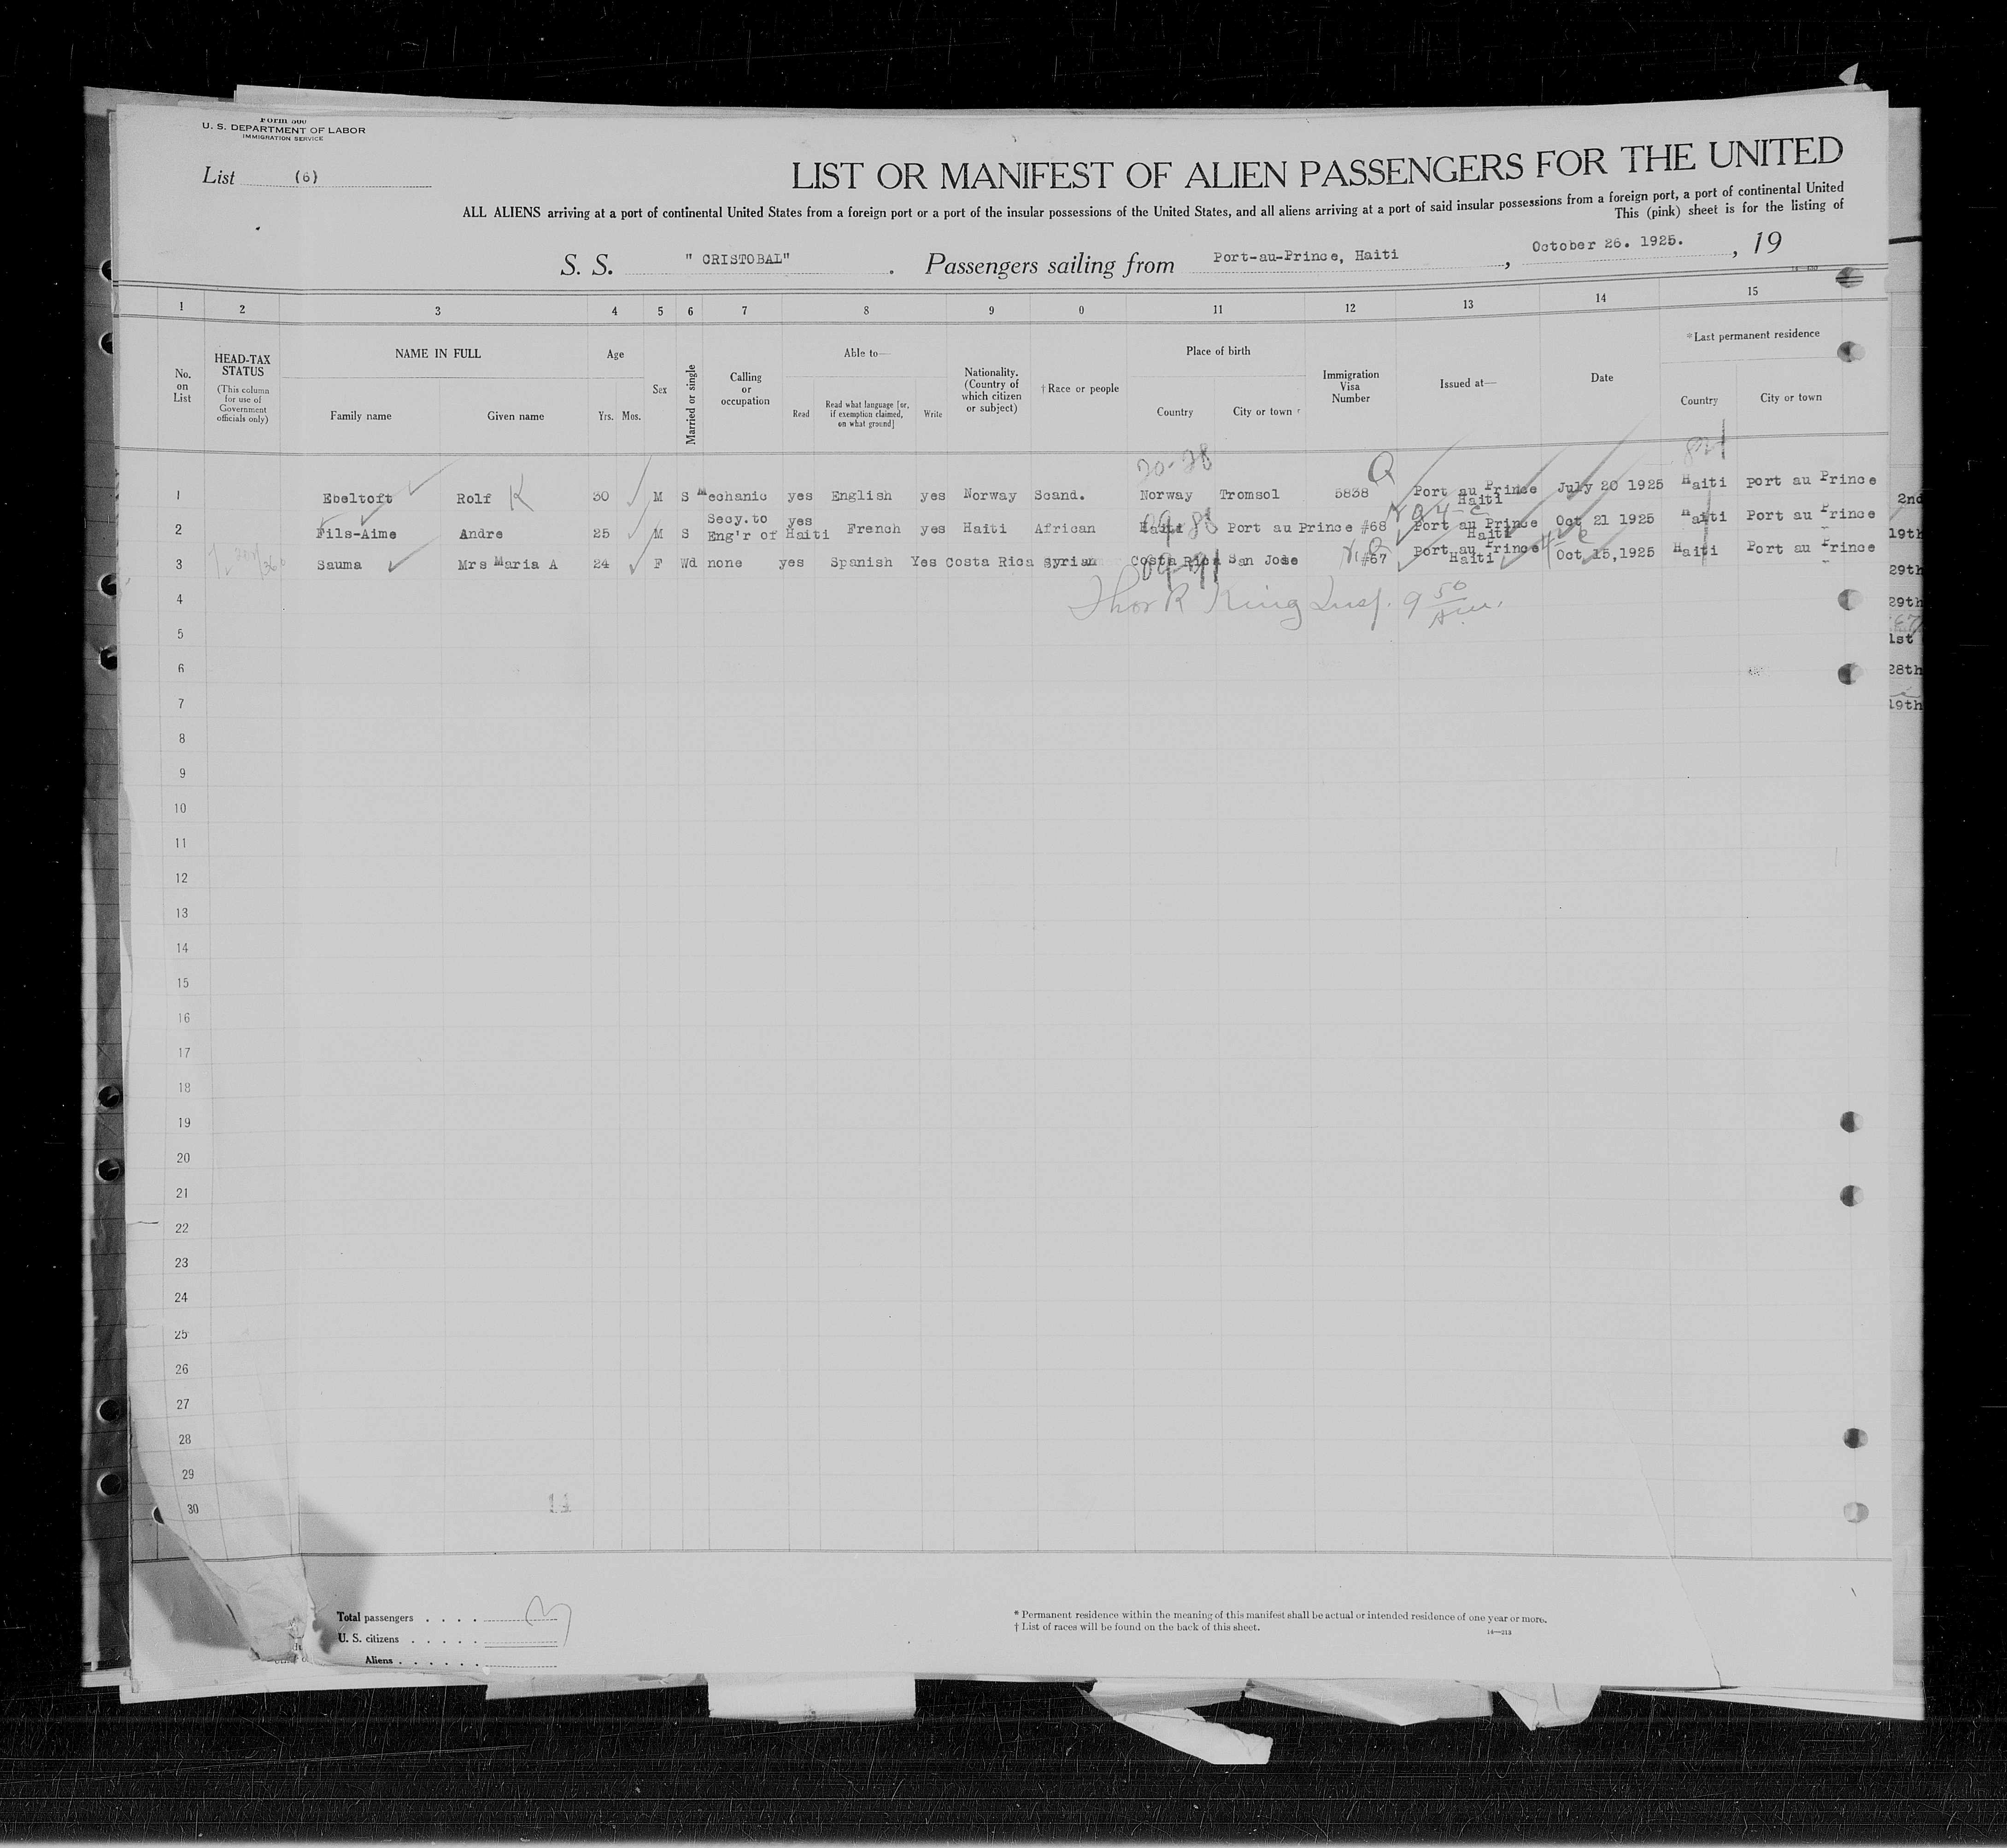 Form 500
U. S. DEPARTMENT OF LABOR
IMMIGRATION SERVICE
List (6)
LIST OR MANIFEST OF ALIEN PASSENGERS FOR THE UNITED
ALL ALIENS arriving at a port of continental United States from a foreign port or a port of the insular possessions of the United States, and all aliens arriving at a port of said insular possessions from a foreign port, a port of continental United
This (pink) sheet is for the listing of
S. S. " CRISTOBAL" . Passengers sailing from Port-au-Prince, Haiti , October 26. 1925. , 19
1 2 3 4 5 6 7 8 9 0 11 12 13 14 15
No. on List
HEAD-TAX STATUS
(This column for use of Government officials only)
NAME IN FULL
Family name Given name
Age
Yrs. Mos.
Sex
Married or single
Calling or occupation
Able to—
Read
Read what language [or, if exemption claimed, on what ground]
Write
Nationality. (Country of which citizen or subject)
† Race or people
Place of birth
Country City or town
Immigration Visa Number
Issued at—
Date
*Last permanent residence
Country City or town
20-28 Q
1 Ebeltoft Rolf K 30 M S Mechanic yes English yes Norway Scand. Norway Tromsol 5838 Port au Prince Haiti July 20 1925 Haiti port au Prince
2 Fils-Aime Andre 25 M S Secy.to Eng'r of Haiti yes French yes Haiti African Haiti Port au Prince #68 Port au Prince Haiti Oct 21 1925 Haiti Port au Prince
3 Sauma Mrs Maria A 24 F Wd none yes Spanish Yes Costa Rica Syrian Costa Rica San Jose #67 Port au Prince Haiti Oct 15,1925 Haiti Port au Prince
4 Thor R King Insp. 9 50 A.m.
5
6
7
8
9
10
11
12
13
14
15
16
17
18
19
20
21
22
23
24
25
26
27
28
29
30
2nd
19th
29th
29th
1st
28th
19th
14
Total passengers . . . . 3
U. S. citizens . . . . .
Aliens . . . . . .
* Permanent residence within the meaning of this manifest shall be actual or intended residence of one year or more.
† List of races will be found on the back of this sheet.
14—213